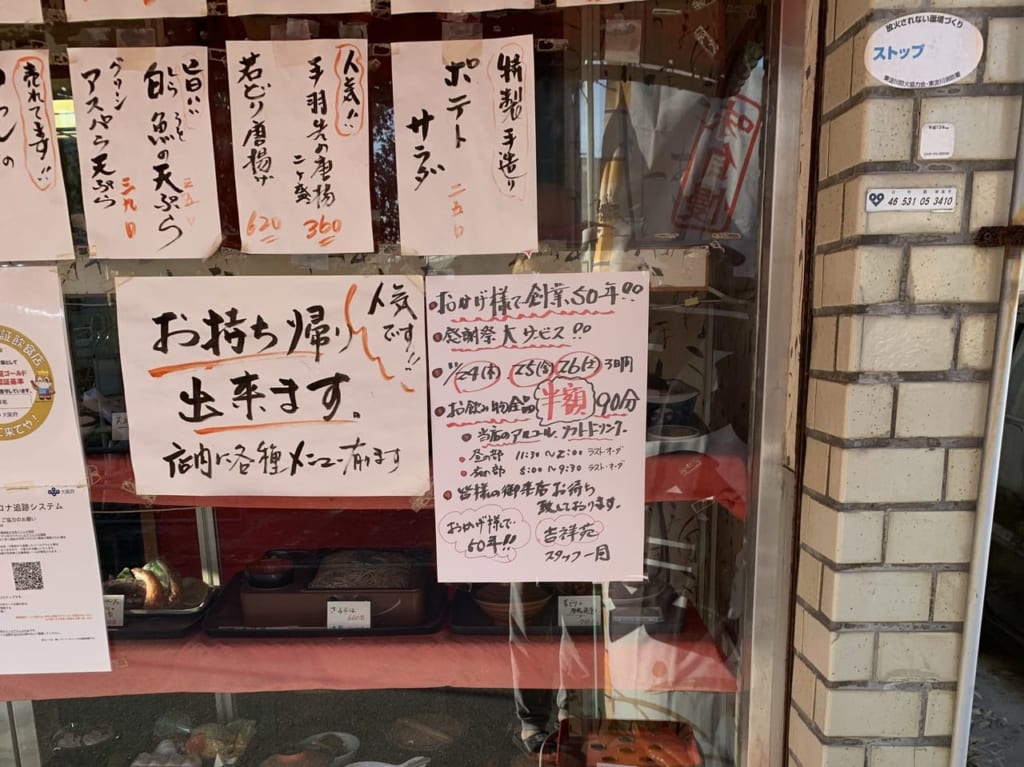 売れてます!!
旨い!
しらうお
白魚の天ぷら
三五〇
グリーン
アスパラ天ぷら
三九〇
人気!!
手羽先の唐揚
二ヶ盛
360
若どり唐揚げ
620
特製手造り
ポテト
サラダ
二五〇
お持ち帰り
出来ます。
人気
です!!
店内に各種メニュー有ります
おかげ様で創業50年!!
感謝祭大サービス!!
11/24(木) 25(金) 26(土) 3日間
お飲み物全品 半額 90分
当店のアルコール、ソフトドリンク
昼の部 11:30~2:00 ラスト・オーダ
夜の部 5:00~9:30 ラスト・オーダ
皆様の御来店お待ち
致しております。
おかげ様で
50年!!
吉祥苑
スタッフ一同
大阪府
コロナ追跡システム
ご協力のお願い
ざるそば
660円
放火されない環境づくり
ストップ
東淀川防火協力会・東淀川消防署
46 531 05 3410